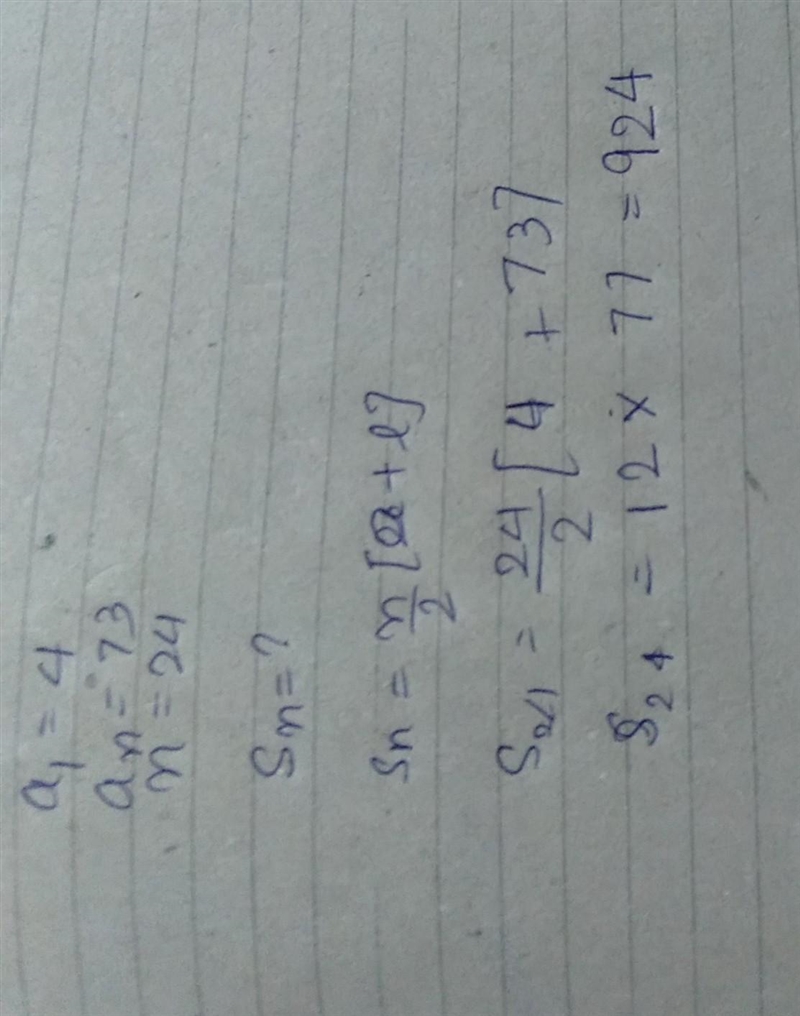 a₁ = 4
aₙ = 73
n = 24
Sₙ = ?
Sn = n/2 [a + l]
S₂₄ = 24/2 [4 + 73]
S₂₄ = 12 × 77 = 924